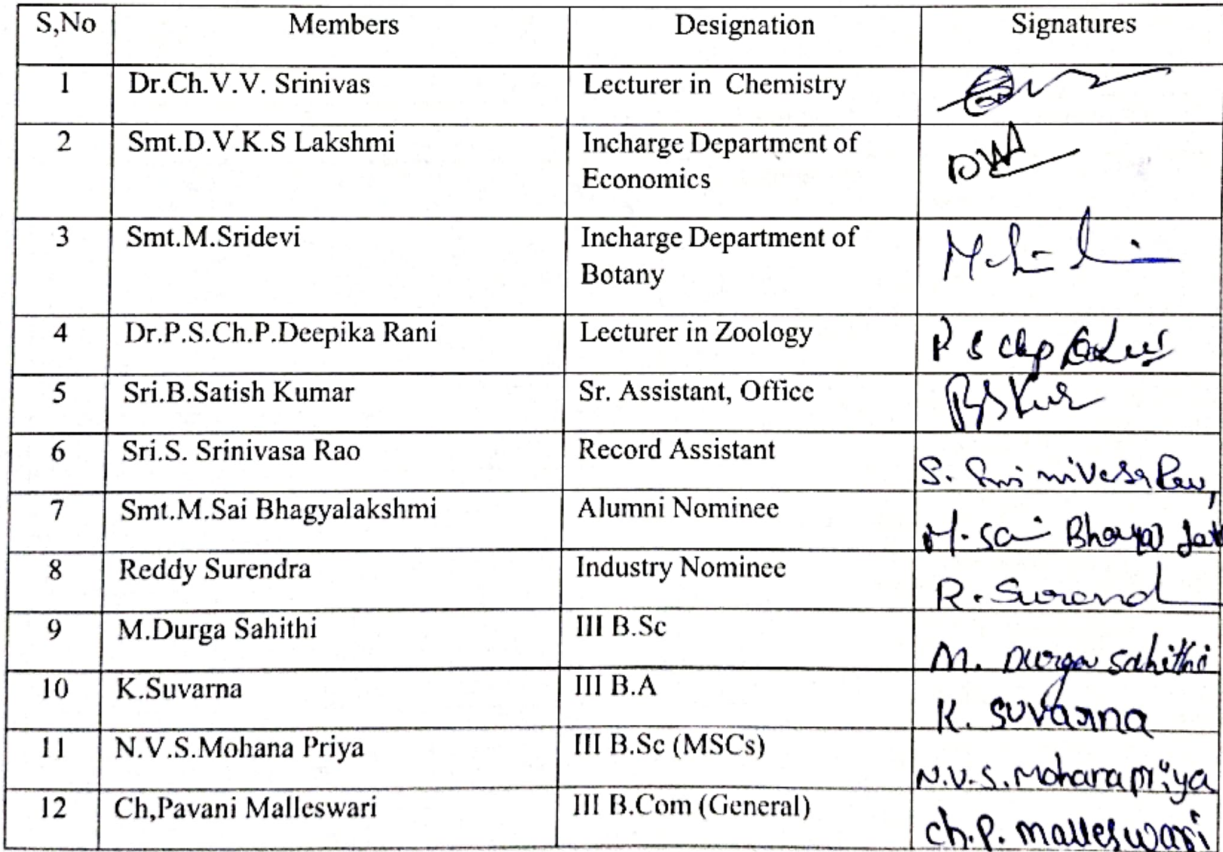 S,No Members Designation Signatures
1 Dr.Ch.V.V. Srinivas Lecturer in Chemistry
2 Smt.D.V.K.S Lakshmi Incharge Department of
Economics
3 Smt.M.Sridevi Incharge Department of
Botany
4 Dr.P.S.Ch.P.Deepika Rani Lecturer in Zoology P S Chp
5 Sri.B.Satish Kumar Sr. Assistant, Office
6 Sri.S. Srinivasa Rao Record Assistant S.
7 Smt.M.Sai Bhagyalakshmi Alumni Nominee M. Sai
8 Reddy Surendra Industry Nominee R. Surend
9 M.Durga Sahithi III B.Sc M. Durga Sahithi
10 K.Suvarna III B.A K. Suvarna
11 N.V.S.Mohana Priya III B.Sc (MSCs) N.V.S. Mohanapriya
12 Ch,Pavani Malleswari III B.Com (General) Ch.P. Malleswari